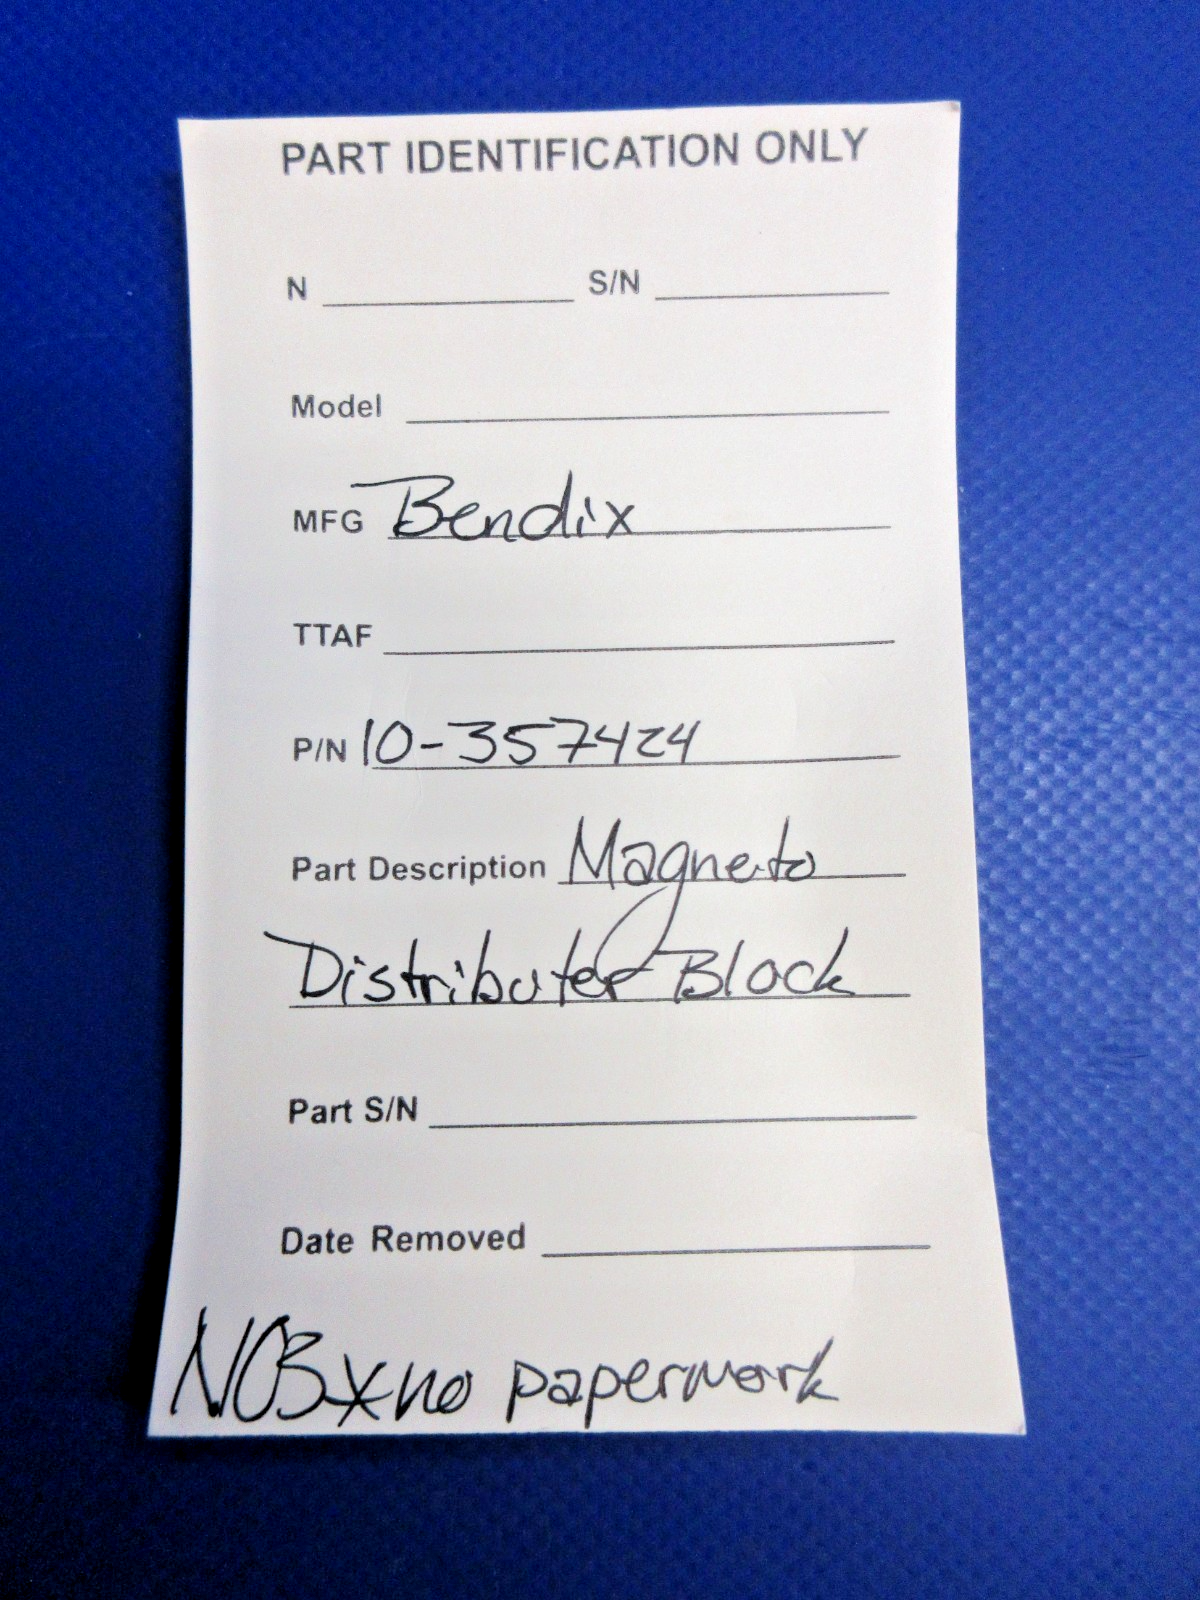 PART IDENTIFICATION ONLY
N S/N
Model
MFG Bendix
TTAF
P/N 10-357424
Part Description Magneto
Distributer Block
Part S/N
Date Removed
NOS * no paperwork